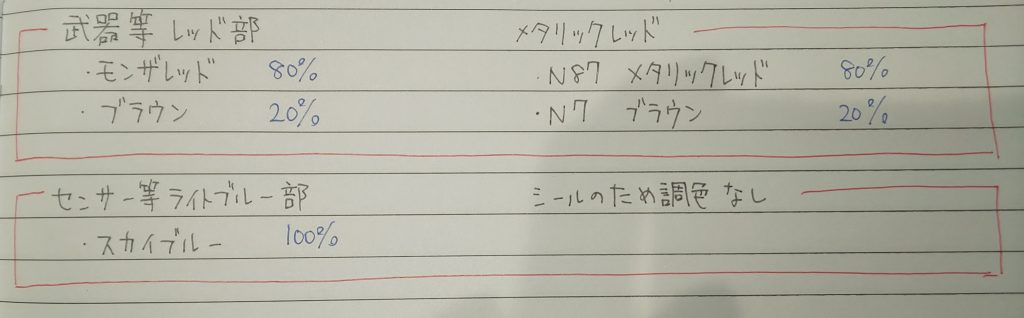 武器等 レッド部 メタリックレッド
・モンザレッド 80% ・N87 メタリックレッド 80%
・ブラウン 20% ・N7 ブラウン 20%
センサー等ライトブルー部 シールのため調色なし
・スカイブルー 100%